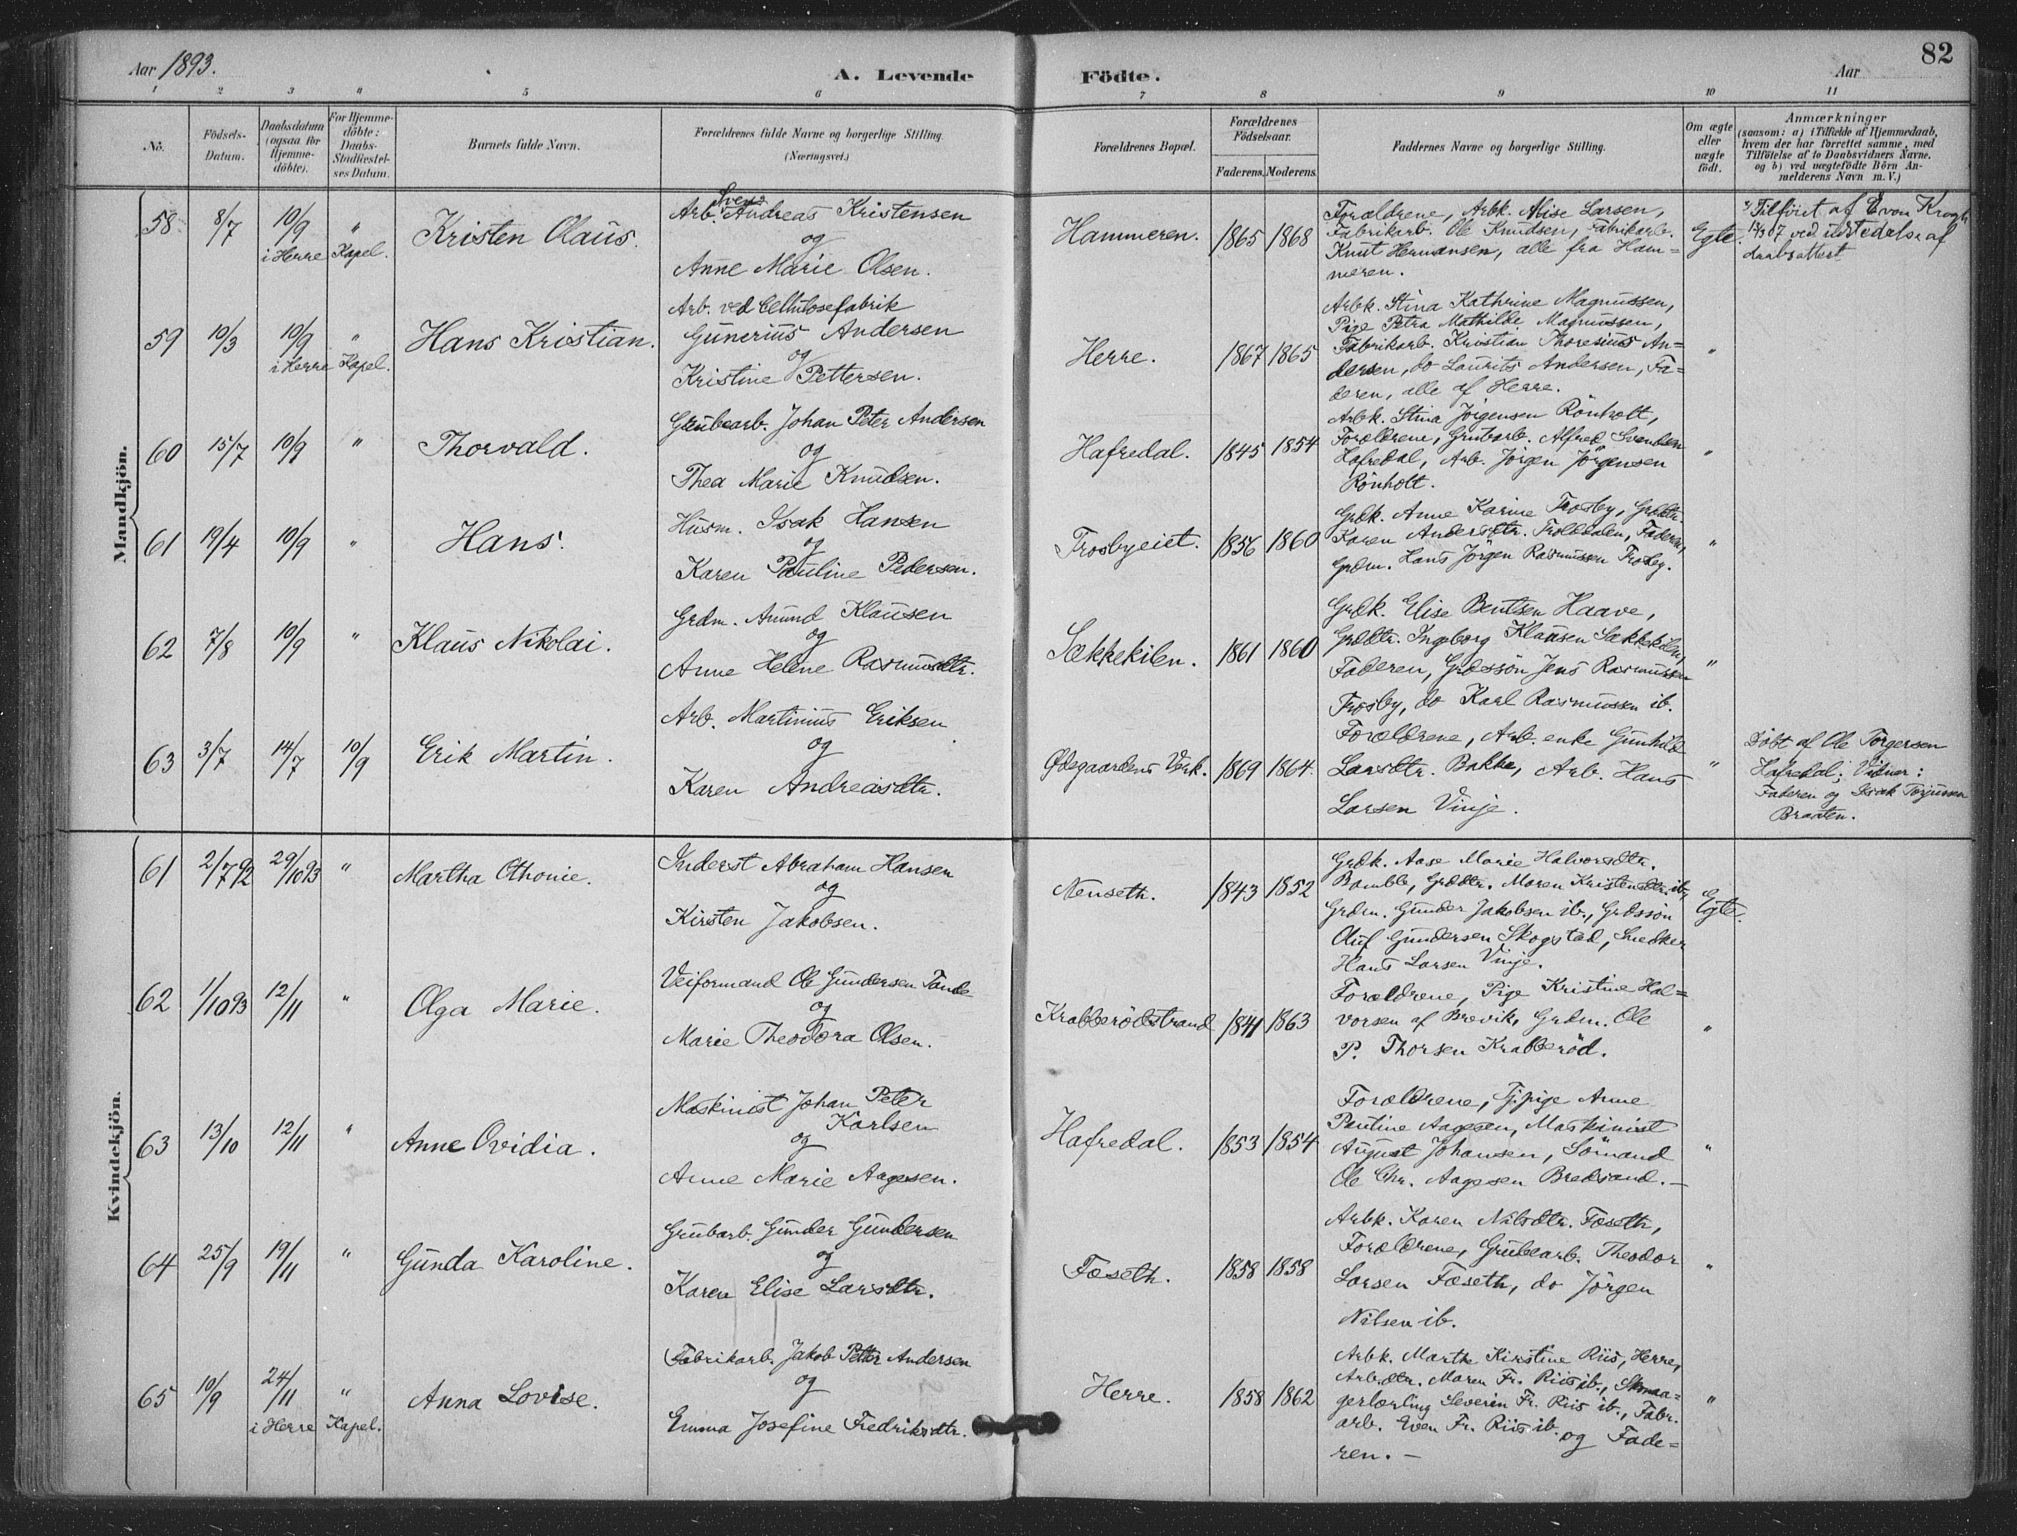 Aar 1893.
A. Levende
Födte.
Aar
82
1 2 3 " 5 6 7 8 9 10 11
No.
Födsels-
Datum.
Daabsdatum
(ogsaa for
Hjemme-
döbte).
For Hjemme-
döbte:
Daabs-
Stadfæstel-
ses Datum.
Barnets fulde Navn.
Forældrenes fulde Navne og borgerlige Stilling.
(Næringsvei.)
Forældrenes Bopæl.
Forældrenes
Födselsaar.
Faderens. Moderens.
Faddernes Navne og borgerlige Stilling.
Om ægte
eller
uægte
födt.
Anmærkninger
(saasom: a) i Tilfælde af Hjemmedaab,
hvem der har forrettet samme, med
Tilföielse af to Daabsvidners Navne.
og b) ved uægtefödte Börn An-
melderens Navn m. V.)
Mandkjön.
58 8/7 10/9 "
i Herre Kapel.
Kristen Olaus.
Svend
Arb. Andreas Kristensen
og
Anne Marie Olsen.
Hammeren. 1865 1868
Forældrene, Arbk. Alise Larsen,
Fabrikarb. Ole Knudsen, Fabrikarb.
Knut Hermansen, alle fra Ham-
meren.
Egte.
Tilföiet af E von Krogh
ved udstedelse af
daabsattest
59 10/3 10/9 "
i Herre Kapel.
Hans Kristian.
Arb. ved Cellulosefabrik
Gunerius Andersen
og
Kristine Pettersen.
Herre. 1867 1865
Arbk. Stina Kathrine Magnussen,
Pige Petra Mathilde Magnussen,
Fabrikarb. Kristian Thoresius An-
dersen, do Laurits Andersen, Fa-
deren, alle af Herre.
"
60 15/7 10/9 "
Thorvald.
Grubearb. Johan Peter Andersen
og
Thea Marie Knudsen.
Hafredal. 1845 1854
Arbk. Stina Jörgensen Rönholt,
Forældrene, Grubarb. Alfred Svendsen
Hafredal, Arb. Jörgen Jörgensen
Rönholt.
"
61 19/4 10/9 "
Hans.
Husm. Isak Hansen
og
Karen Pauline Pedersen.
Trosbyeiet. 1856 1860
Grdk. Anne Karine Trosby, Grddtr.
Karen Andersdtr. Trolldalen, Faderen,
Grdm. Hans Jörgen Rasmussen Trosby.
"
62 7/8 10/9 "
Klaus Nikolai.
Grdm. Amund Klausen
og
Anne Helene Rasmusdtr.
Sækkekilen. 1861 1860
Grdk. Elise Bentsen Haave,
Grddtr. Ingeborg Klausen Sækkekilen,
Faderen, Grdssön Jens Rasmussen
Trosby, do Karl Rasmussen ib.
"
63 3/7 14/7 10/9
Erik Martin.
Arb. Martinius Eriksen
og
Karen Andreasdtr.
Ødegaardens Verk. 1869 1864.
Forældrene, Arb. enke Gunhild
Larsdtr. Bakke, Arb. Hans
Larsen Vinje.
"
Döbt af Ole Torgersen
Hafredal; Vidner:
Faderen og Isak Torjussen
Braaten.
Kvindekjön.
61 2/7 92 29/10 93 "
Martha Othonie.
Inderst Abraham Hansen
og
Kirsten Jakobsen.
Nenseth. 1843 1852
Grdk. Aase Marie Halvorsdtr.
Bamble, Grddtr. Maren Kristensdtr. ib,
Grdm. Gunder Jakobsen ib., Grdssön
Oluf Gundersen Skogstad, Snedker
Hans Larsen Vinje.
Egte.
62 1/10 93 12/11 "
Olga Marie.
Veiformand Ole Gundersen Tande
og
Marie Theodora Olsen.
Krabberödstrand 1841 1863
Forældrene, Pige Kristine Hal-
vorsen af Brevik, Grdm. Ole
P. Thorsen Krabberöd.
"
63 13/10 12/11 "
Anne Ovidia.
Maskinist Johan Peter
Karlsen
og
Anne Marie Aagesen.
Hafredal. 1853 1854
Forældrene, Tj.pige Anne
Pauline Aagesen, Maskinist
August Johansen, Sömand
Ole Chr. Aagesen Bredsand. —
"
64 25/9 19/11 "
Gunda Karoline.
Grubarb. Gunder Gundersen
og
Karen Elise Larsdtr.
Fæseth. 1858 1858
Arbk. Karen Nilsdtr. Fæseth,
Forældrene, Grubearb. Theodor
Larsen Fæseth, do Jörgen
Nilsen ib.
"
65 10/9 24/11 "
i Herre Kapel.
Anna Lovise.
Fabrikarb. Jakob Petter Andersen
og
Emma Josefine Fredriksdtr.
Herre. 1858 1862
Arbk. Marthe Kirstine Riis, Herre,
Arbdtr. Maren Fr. Riis ib., Skmaa-
gerlærling Severin Fr. Riis ib., Fabr.
arb. Even Fr. Riis ib. og Fade-
ren. —
"